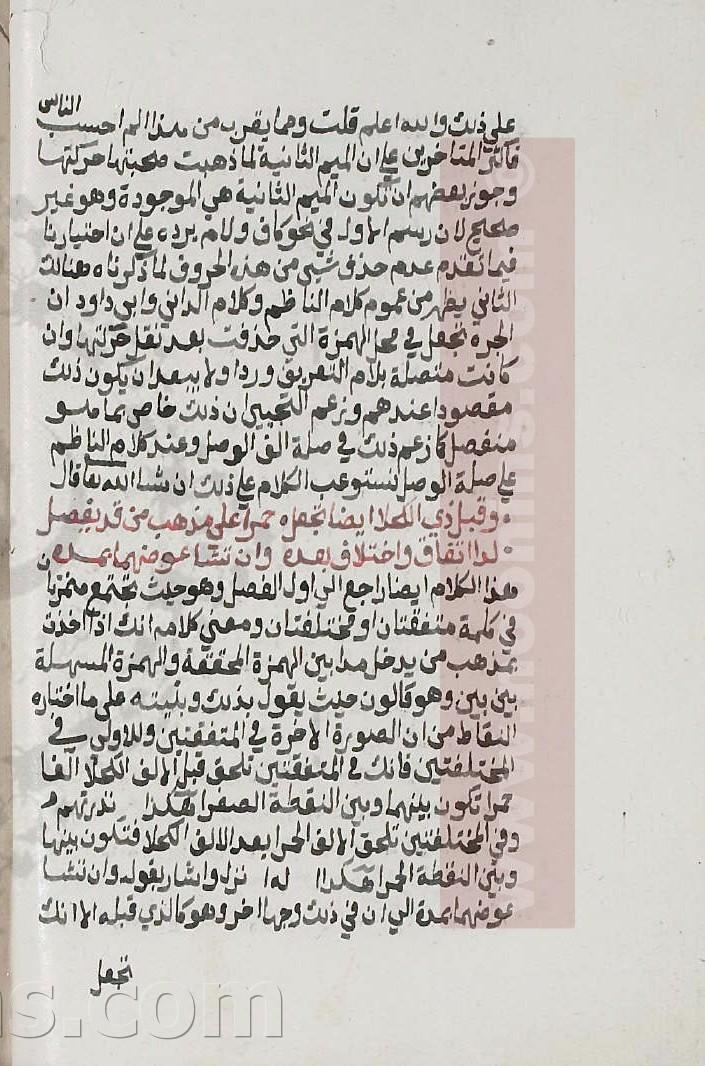 على ذلك والله اعلم قلت ومما يقرب من هذا الم احسب الناس
فاكثر المتاخرين على ان الميم الثانية لما ذهبت صحبتها حركتها
وجوز بعضهم ان تكون الميم الثانية هي الموجودة وهو غير
صحيح لان رسم الاول في نحو كاف ولام يرده على ان اختيارنا
فيما تقدم عدم حذف شيى من هذه الحروف لما ذكرناه هنالك
الثاني يظهر من عموم كلام الناظم وكلام الداني وابي داود ان
الجرة تجعل في محل الهمزة التي حذفت بعد نقل حركتها وان
كانت متصلة بلام التعريف وردا ولا يبعد ان يكون ذلك
مقصودا عندهم وزعم التجيبي ان ذلك خاص بما هو
منفصل كما زعم ذلك في صلة الف الوصل وعند كلام الناظم
على صلة الوصل نستوعب الكلام على ذلك ان شا الله تعا قال
وقبل ذي الكحلا ايضا تجعل حمرا على مذهب من قد يفصل
لدا اتفاق واختلاف بعده وان تشا عوضهما بمده
هذا الكلام ايضا راجع الى اول الفصل وهو حيث تجتمع همزتان
في كلمة متفقتان او مختلفتان ومعنى كلامه انك اذا اخذت
بمذهب من يدخل مدا بين الهمزة المحققة والهمزة المسهلة
بين بين وهو قالون حيث يقول بذلك وبنيته على ما اختاره
النقاط من ان الصورة الاخرة في المتفقتين وللاولى في
المختلفتين فانك في المتفقتين تلحق قبل الالف الكحلا الفا
حمرا تكون بينها وبين النقطة الصفرا هكذا ءانذرتهم
وفي المختلفتين تلحق الالف الحمرا بعد الالف الكحلا فتكون بينها
وبين النقطة الحمرا هكذا نزل واشار بقوله وان تشا
عوضهما بمدة الى ان في ذلك وجها اخر وهو كالذي قبله الا انك
تجعل
www.noonhms.com